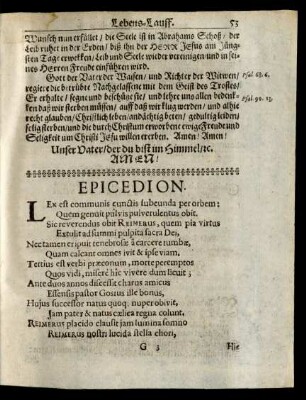 Lebens-Lauff. 53
Wunsch nun erfüllet / die Seele ist in Abrahams Schoß / der
Leib ruhet in der Erden / biß ihn der HErr Jesus am Jüng-
sten Tage erwekken / Leib und Seele wieder vereinigen und in sei-
nes Herren Freude einführen wird.
Gott der Vater der Waisen / und Richter der Witwen / Psal. 68. 6.
regiere die betrübte Nachgelassene mit dem Geist des Trostes /
Er erhalte / segne und beschütze sie / und lehre uns allen bedenk-
ken daß wir sterben müssen / auff daß wir klug werden / und alhie Psal. 90. 12.
recht glauben / Christlich leben / andächtig beten / gedultig leiden /
selig sterben / und die durch Christum erworbene ewige Freude und
Seligkeit um Christi Jesu willen ererben. Amen / Amen!
Unser Vater / der du bist im Himmel / ꝛc.
AMEN!
EPICEDION.
LEx est communis cunctis subeunda per orbem:
Quem genuit pulvis pulverulentus obit.
Sic reverendus obit REIMERUS, quem pia virtus
Extulit ad summi pulpita sacra Dei,
Nec tamen eripuit tenebrosæ à carcere tumbæ,
Quam calcant omnes ivit & ipse viam,
Tertius est verbi præconum, morte peremptos
Quos vidi, miserè hîc vivere dum licuit;
Ante duos annos discessit charus amicus
Essensis pastor Gosius ille bonus,
Hujus successor natus quoq; nuper obivit,
Jam pater & natus cælica regna colunt.
REIMERUS placido clausit jam lumina somno
REIMERUS nostri lucida stella chori,
G 3 Hic